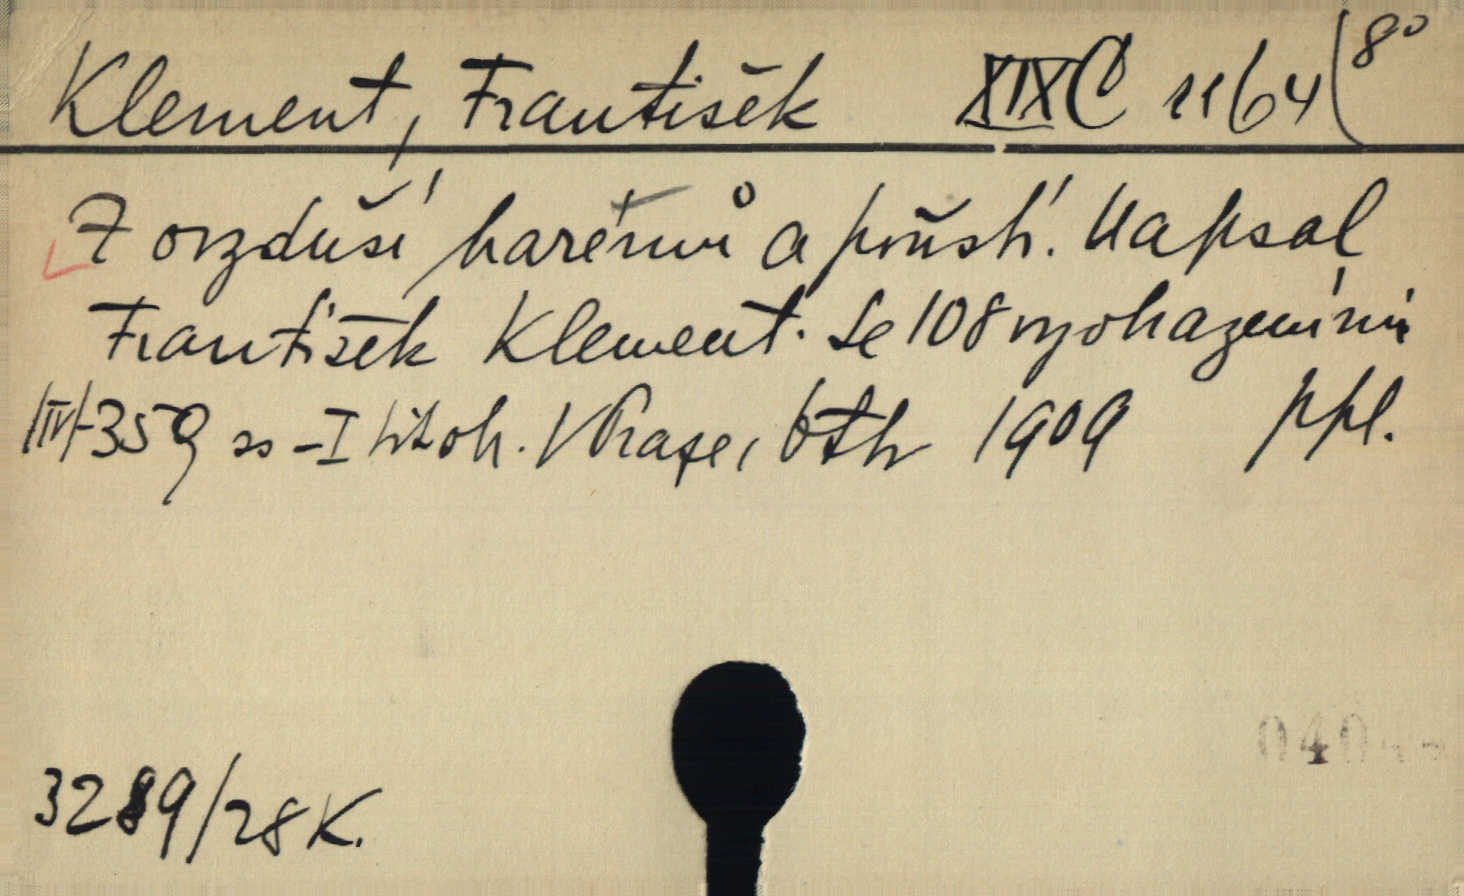 Klement, František XIX C 1164 (8°
Z ovzduší harémů a pouští. Napsal
František Klement. Se 108 vyobrazeními
/IV/-359 ss -I tit. obr. V Praze, Otto 1909 ppl.
3289/28 K.